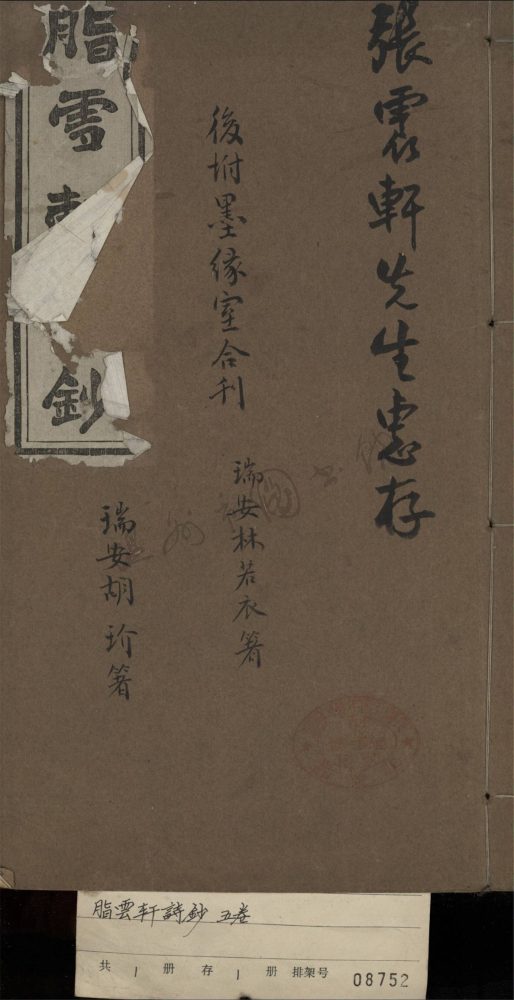 張震軒先生惠存
後坿墨緣室合刊
瑞安林若衣箸
瑞安胡玠箸
脂雪
鈔
脂雲軒詩鈔 五卷
共 1 册 存 1 册 排架号 08752